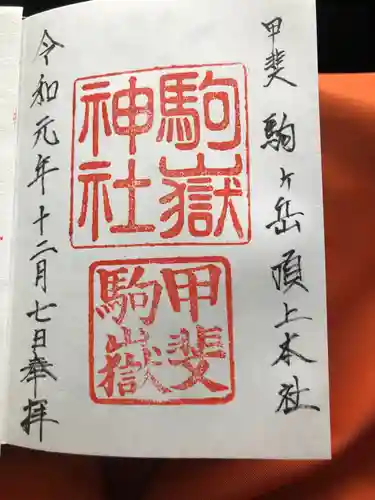 甲斐 駒ヶ岳 頂上本社
駒嶽
神社
甲斐
駒嶽
令和元年十二月七日奉拝